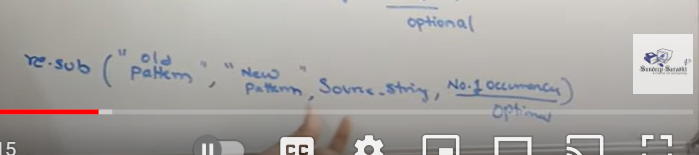 optional
re.sub ("old pattern", "New pattern", Source-String, No.of occurrences)
optional
15
CC
Sundeep Saradhi